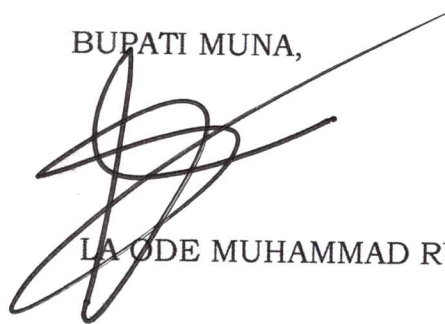 BUPATI MUNA,
LA ODE MUHAMMAD